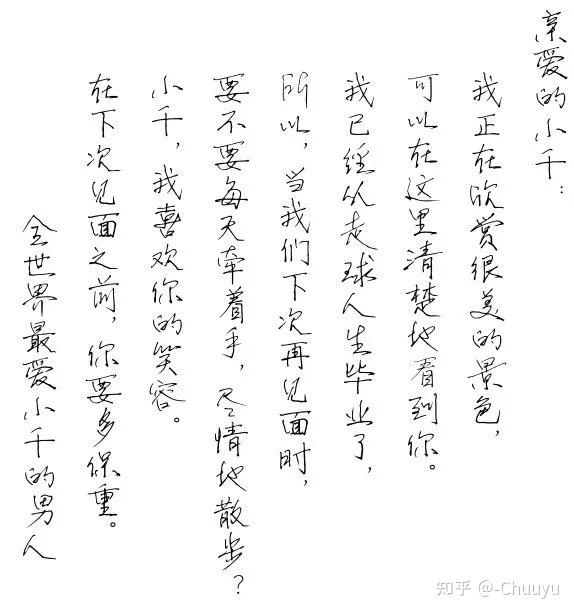 亲爱的小千：
我正在欣赏很美的景色，
可以在这里清楚地看到你。
我已经从走球人生毕业了，
所以，当我们下次再见面时，
要不要每天牵着手，尽情地散步？
小千，我喜欢你的笑容。
在下次见面之前，你要多保重。
全世界最爱小千的男人
知乎 @-Chuuyu